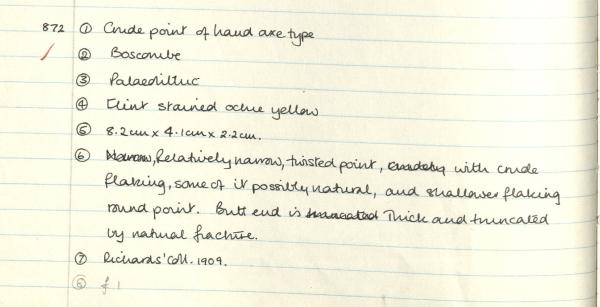 872 ① Crude point of hand axe type
② Boscombe
③ Palaeolithic
④ Flint stained ochre yellow
⑤ 8.2cm x 4.1cm x 2.2cm.
⑥ Narrow, Relatively narrow, twisted point, with crude
flaking, some of it possibly natural, and shallower flaking
round point. Butt end is truncated Thick and truncated
by natural fracture.
⑦ Richards' Coll. 1909.
f 1